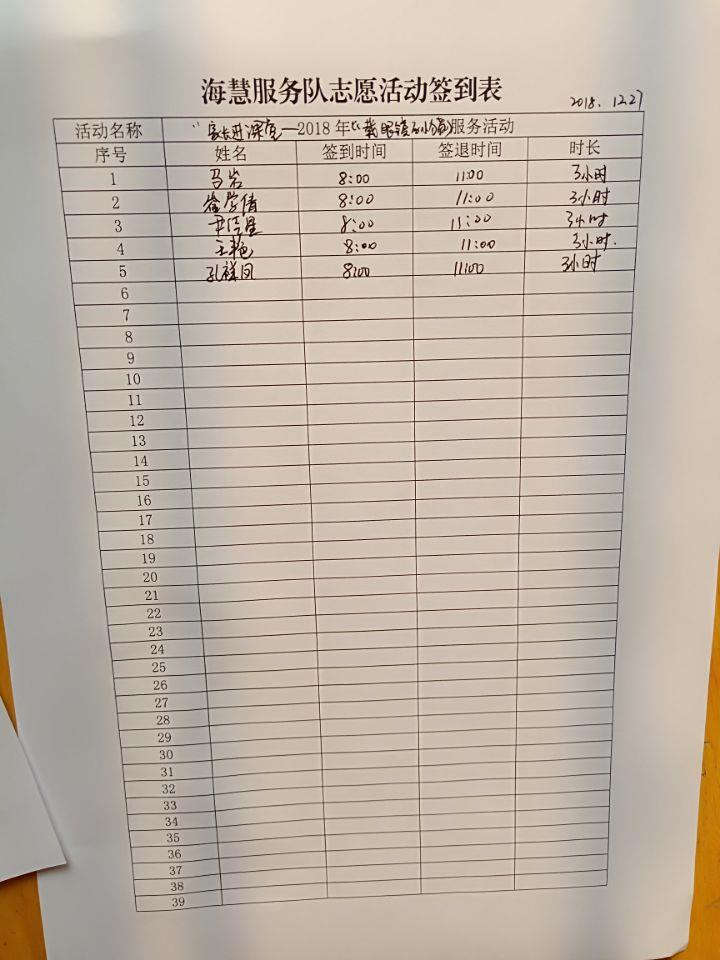 海慧服务队志愿活动签到表
2018. 12.27
活动名称 "家长进课堂—2018年《戴眼镜的小猫》服务活动
序号 姓名 签到时间 签退时间 时长
1 马岩 8:00 11:00 3小时
2 崔学倩 8:00 11:00 3小时
3 8:00 11:00 3小时
4 王艳 8:00 11:00 3小时.
5 孔祥凤 8:00 11:00 3小时
6
7
8
9
10
11
12
13
14
15
16
17
18
19
20
21
22
23
24
25
26
27
28
29
30
31
32
33
34
35
36
37
38
39